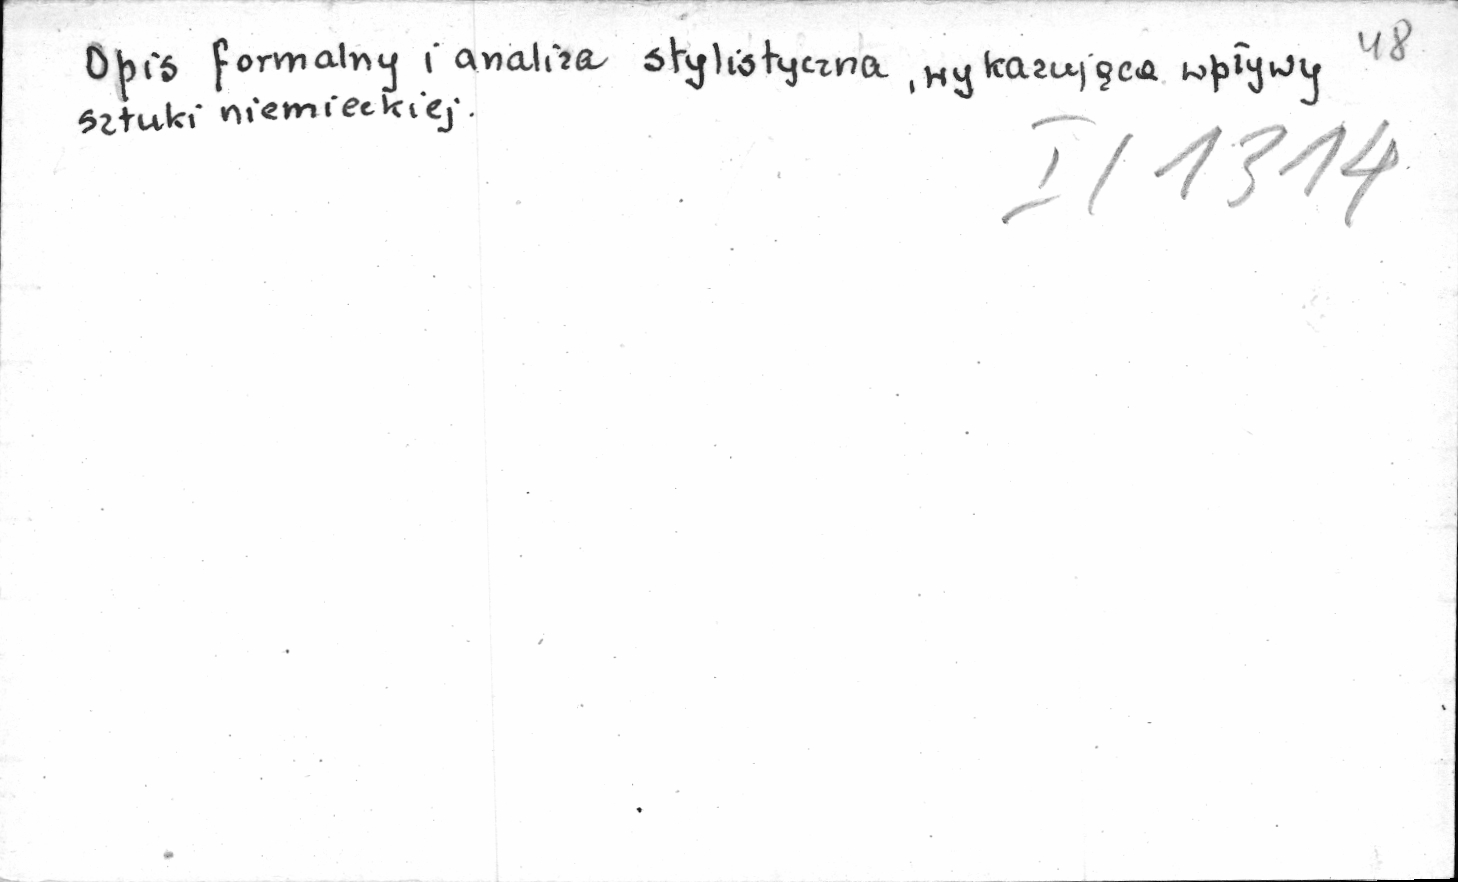 Opis formalny i analiza stylistyczna, wykazująca wpływy 48
sztuki niemieckiej.
I/1314